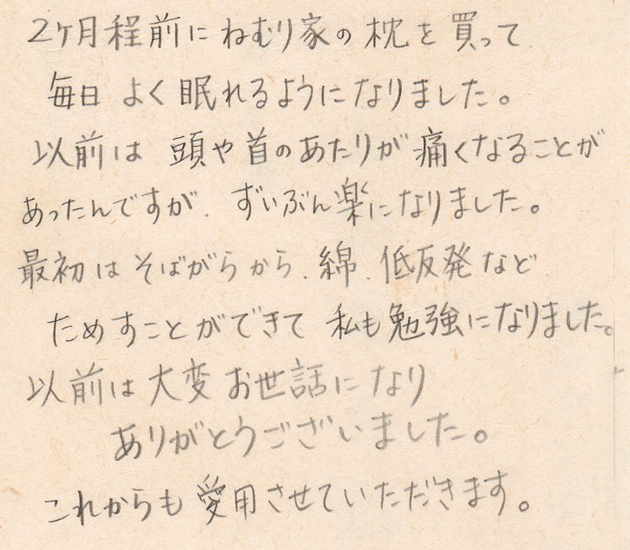 2ケ月程前に ねむり家の枕を買って
毎日 よく眠れるようになりました。
以前は 頭や首のあたりが痛くなることが
あったんですが、ずいぶん楽になりました。
最初は そばがらから、綿、低反発など
ためすことができて 私も勉強になりました。
以前は大変お世話になり
ありがとうございました。
これからも 愛用させていただきます。